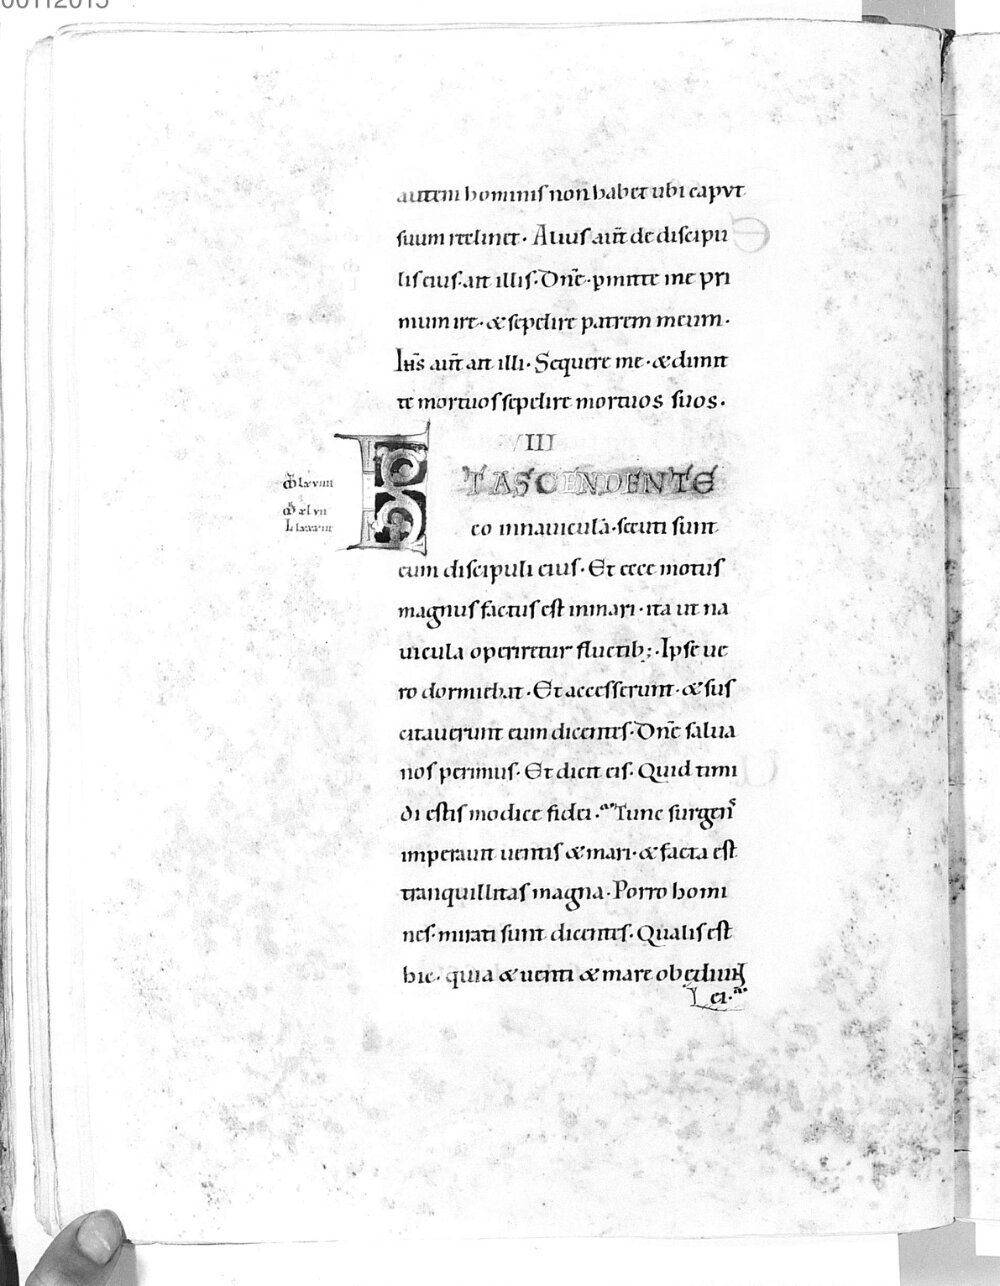 00112015
autem hominis non habet ubi caput
suum reclinet. Alius aut̄ de discipu
lis eius. ait illis. Dn̄e. p̱mitte me pri
mum ire. & sepelire patrem meum.
Ih̄s aut̄ ait illi. Sequere me. & dimit
te mortuos sepelire mortuos suos.
VIII
ET ASCENDENTE
eo in nauiculā. secuti sunt
eum discipuli eius. Et ecce motus
magnus factus est in mari. ita ut na
uicula operiretur fluctib;. Ipse ue
ro dormiebat. Et accesserunt. & sus
citauerunt eum dicentes. Dn̄e salua
nos perimus. Et dicit eis. Quid timi
di estis modice fidei. Tunc surgens
imperauit uentis & mari. & facta est
tranquillitas magna. Porro homi
nes. mirati sunt dicentes. Qualis est
hic. quia & uenti & mare obediunt
ei.